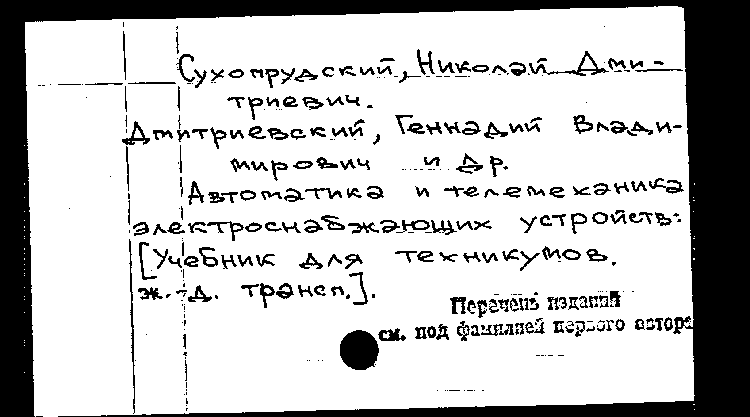 Сухопрудский, Николай Дми-
триевич.
Дмитриевский, Геннадий Влади-
мирович и др.
Автоматика и телемеханика
электроснабжающих устройств:
[Учебник для техникумов.
ж.-д. трансп.].
Перечень изданий
см. под фамилией первого автора